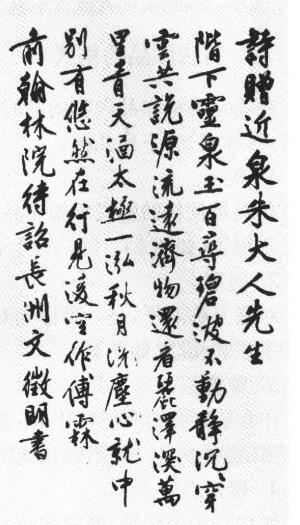 詩贈近泉朱大人先生
階下靈泉玉百尋碧波不動靜沉沉穿
雲共說源流遠濟物還看麗澤深萬
里青天涵太極一泓秋月洗塵心就中
別有悠然在行見漫空作傅霖
前翰林院待詔長洲文徵明書